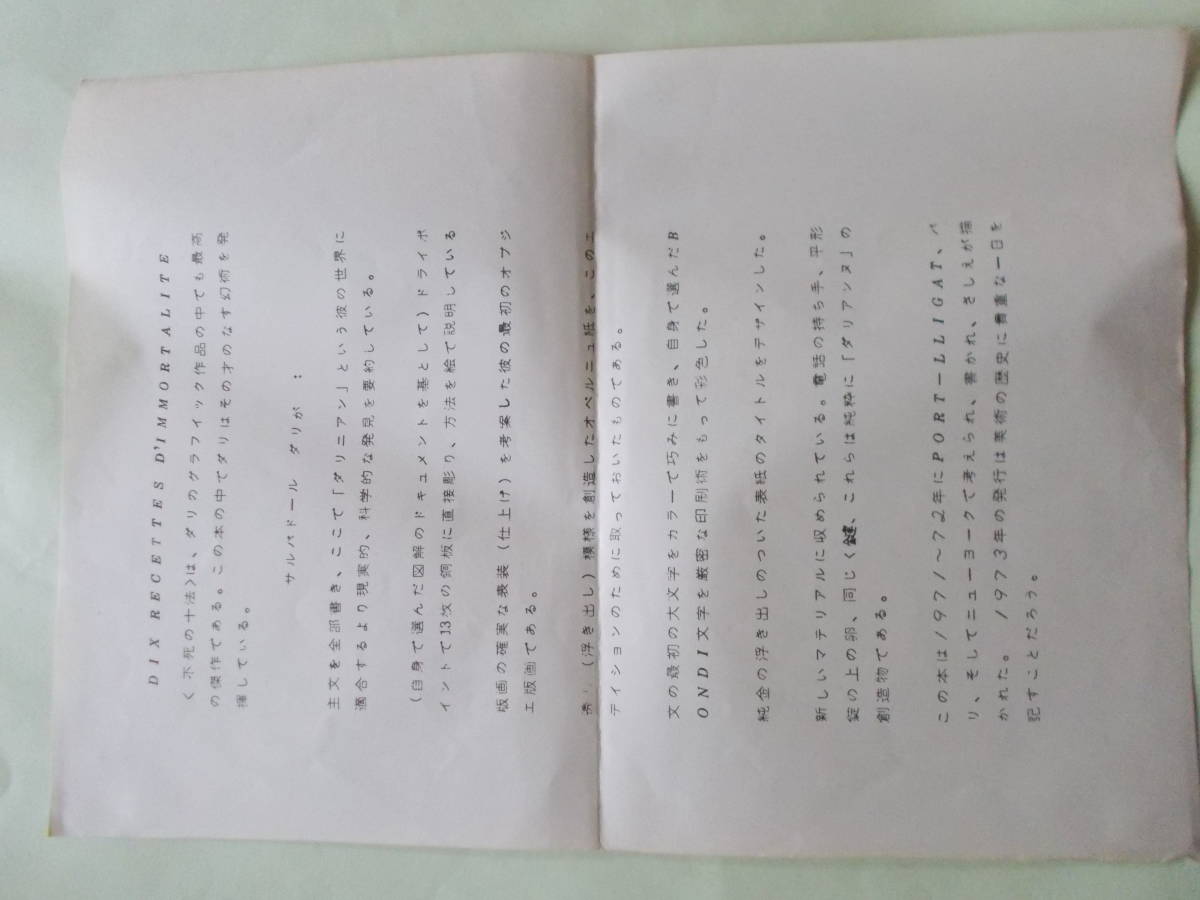 DIX RECETTES D'IMMORTALITE
＜不死の十法＞は、ダリのグラフィック作品の中でも最高
の傑作である。この本の中でダリはその才のなす幻術を発
揮している。
サルバドール ダリが :
主文を全部書き、ここで「ダリニアン」という彼の世界に
適合するより現実的、科学的な発見を要約している。
（自身で選んだ図解のドキュメントを基として）ドライポ
イントで13枚の銅板に直接彫り、方法を絵で説明している
版画の確実な表装（仕上げ）を考案した彼の最初のオブジ
エ版画である。
（浮き出し）模様を創造したオベルニュ紙を、このエ
ディションのために取っておいたものである。
文の最初の大文字をカラーで巧みに書き、自身で選んだB
ONDI文字を厳密な印刷術をもって彩色した。
純金の浮き出しのついた表紙のタイトルをデザインした。
新しいマテリアルに収められている。電話の持ち手、平形
錠の上の卵、同じく鍵、これらは純粋に「ダリアンヌ」の
創造物である。
この本は1971～72年にPORT－LLIGAT、パ
リ、そしてニューヨークで考えられ、書かれ、さしえが描
かれた。 1973年の発行は美術の歴史に貴重な一日を
記すことだろう。